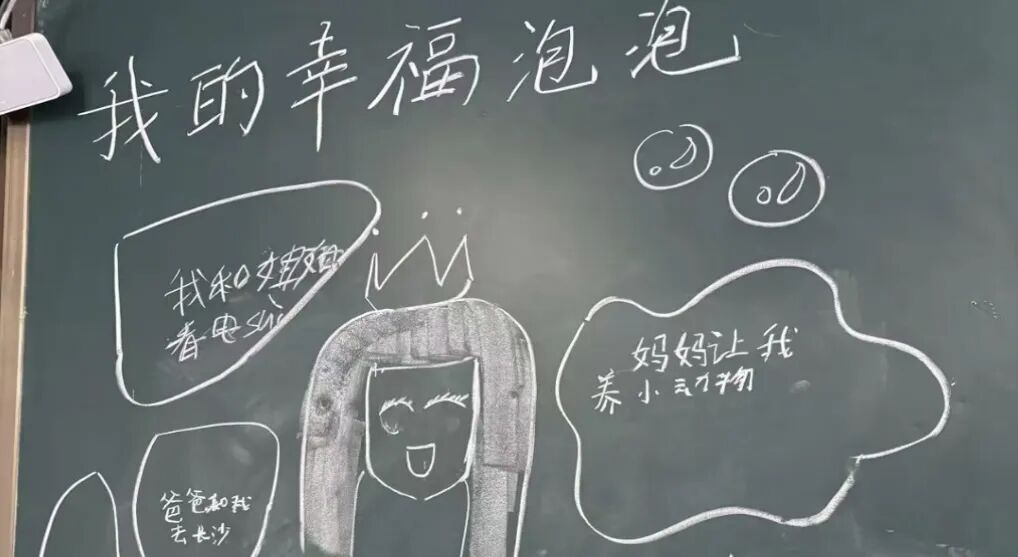 我的幸福泡泡
我和姆姆
看电shi
妈妈让我
养小动物
爸爸和我
去长沙